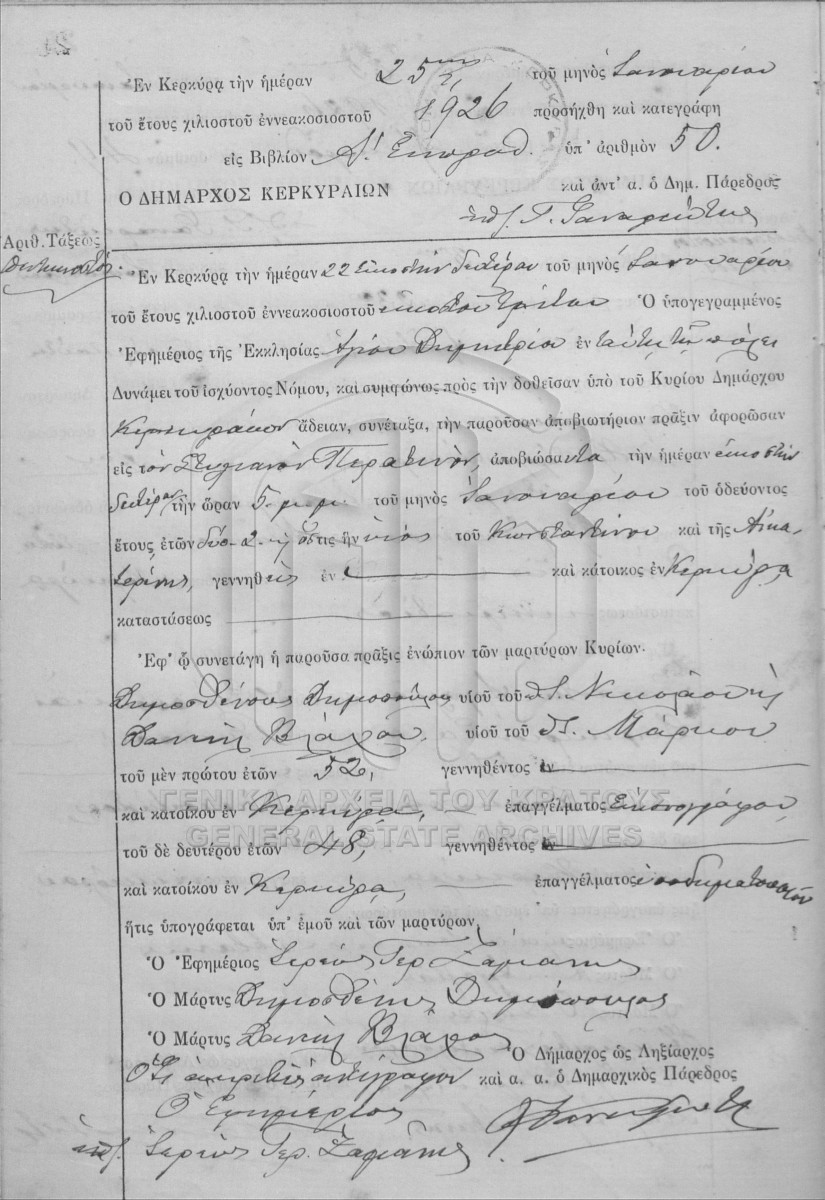 Ἐν Κερκύρᾳ τὴν ἡμέραν 25ην τοῦ μηνὸς Ἰανουαρίου
τοῦ ἔτους χιλιοστοῦ ἐννεακοσιοστοῦ 1926 προσήχθη καὶ κατεγράφη
εἰς Βιβλίον Α! ὑπ' ἀριθμὸν 50.
Ο ΔΗΜΑΡΧΟΣ ΚΕΡΚΥΡΑΙΩΝ καὶ ἀντ' α. ὁ Δημ. Πάρεδρος
ὑπ. Γ.
Ἀριθ. Τάξεως
Ἐν Κερκύρᾳ τὴν ἡμέραν 22 εἰκοστὴν δευτέραν τοῦ μηνὸς Ἰανουαρίου
τοῦ ἔτους χιλιοστοῦ ἐννεακοσιοστοῦ εἰκοστοῦ Ὁ ὑπογεγραμμένος
Ἐφημέριος τῆς Ἐκκλησίας Ἁγίου Δημητρίου ἐν ταύτῃ τῇ πόλει
Δυνάμει τοῦ ἰσχύοντος Νόμου, καὶ συμφώνως πρὸς τὴν δοθεῖσαν ὑπὸ τοῦ Κυρίου Δημάρχου
Κερκυραίων ἄδειαν, συνέταξα, τὴν παροῦσαν ἀποβιωτήριον πρᾶξιν ἀφορῶσαν
εἰς τὸν Στυλιανὸν Περατινὸν, ἀποβιώσαντα τὴν ἡμέραν εἰκοστὴν
δευτέραν τὴν ὥραν 5. μ.μ. τοῦ μηνὸς Ἰανουαρίου τοῦ ὁδεύοντος
ἔτους, ἐτῶν δύο - 2 - ὅστις ἦν υἱὸς τοῦ Κωνσταντίνου καὶ τῆς Αἰκα-
τερίνης, γεννηθεὶς ἐν καὶ κάτοικος ἐν Κερκύρᾳ
καταστάσεως
Ἐφ' ᾧ συνετάγη ἡ παροῦσα πρᾶξις ἐνώπιον τῶν μαρτύρων Κυρίων.
Δημοσθένους Δημοπούλου υἱοῦ τοῦ Νικολάου ἡ
Δανιὴλ Βλάχου υἱοῦ τοῦ Μάρκου
τοῦ μὲν πρώτου ἐτῶν 52, γεννηθέντος ἐν
ΓΕΝΙΚΑ ΑΡΧΕΙΑ ΤΟΥ ΚΡΑΤΟΥΣ
καὶ κατοίκου ἐν Κερκύρᾳ, ἐπαγγέλματος
GENERAL STATE ARCHIVES
τοῦ δὲ δευτέρου ἐτῶν 48, γεννηθέντος ἐν
καὶ κατοίκου ἐν Κερκύρᾳ, ἐπαγγέλματος ὑποδηματοποιοῦ
ἥτις ὑπογράφεται ὑπ' ἐμοῦ καὶ τῶν μαρτύρων,
Ὁ Ἐφημέριος Ἱερεὺς Γερ.
Ὁ Μάρτυς Δημοσθένης Δημόπουλος
Ὁ Μάρτυς Δανιὴλ Βλάχος
Ὁ Δήμαρχος ὡς Ληξίαρχος
ἀκριβὲς ἀντίγραφον καὶ α. α. ὁ Δημαρχικὸς Πάρεδρος
Ὁ Ἐφημέριος
ὑπ. Ἱερεὺς Γερ.